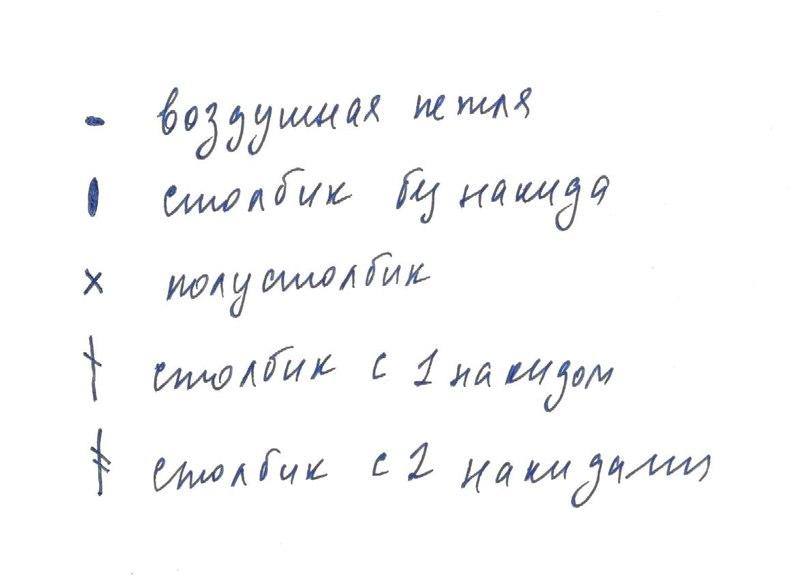 - воздушная петля
столбик без накида
x полустолбик
столбик с 1 накидом
столбик с 2 накидами